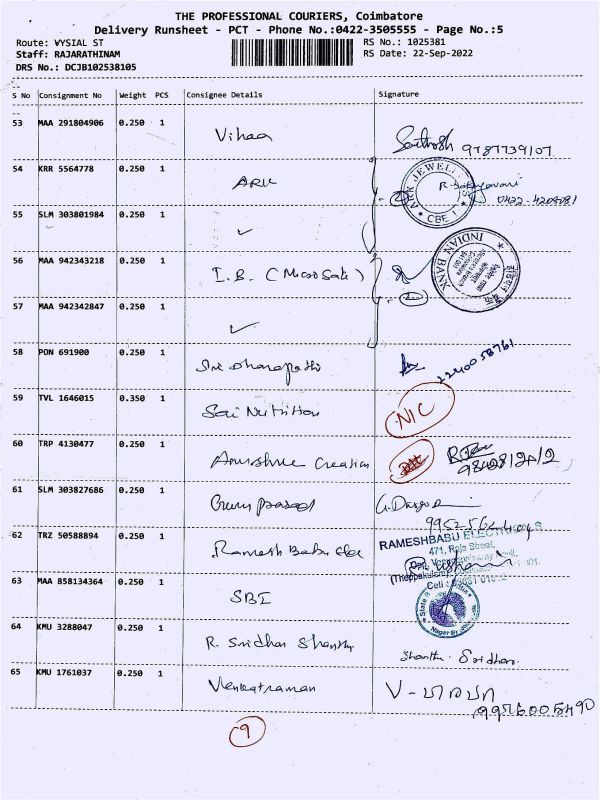 THE PROFESSIONAL COURIERS, Coimbatore
Delivery Runsheet - PCT - Phone No.:0422-3505555 - Page No.:5
Route: VYSIAL ST
RS No.: 1025381
Staff: RAJARATHINAM
RS Date: 22-Sep-2022
DRS No.: DCJB102538105
S No Consignment No Weight PCS Consignee Details Signature
53 MAA 291804906 0.250 1 Vihaa Santhosh 9787739107
54 KRR 5564778 0.250 1 ARK
ARK JEWELL
CBE
55 SLM 303801984 0.250 1 ✓
56 MAA 942343218 0.250 1 I.B. (Micro Sate) 2
INDIAN BANK
57 MAA 942342847 0.250 1 ✓
58 PON 691900 0.250 1 Sri Dhanapathi 2240058761
59 TVL 1646015 0.350 1 Sai Nutrition N/C
60 TRP 4130477 0.250 1 Anushree Creation
61 SLM 303827686 0.250 1 Guru prasad
62 TRZ 50588894 0.250 1 Ramesh Babu Ele
RAMESHBABU ELECTRICALS
471, Raja Street,
63 MAA 858134364 0.250 1 SBI
64 KMU 3288047 0.250 1 R. Sridhar Shanthi Shanthi Sridhar
65 KMU 1761037 0.250 1 Venkatraman
9